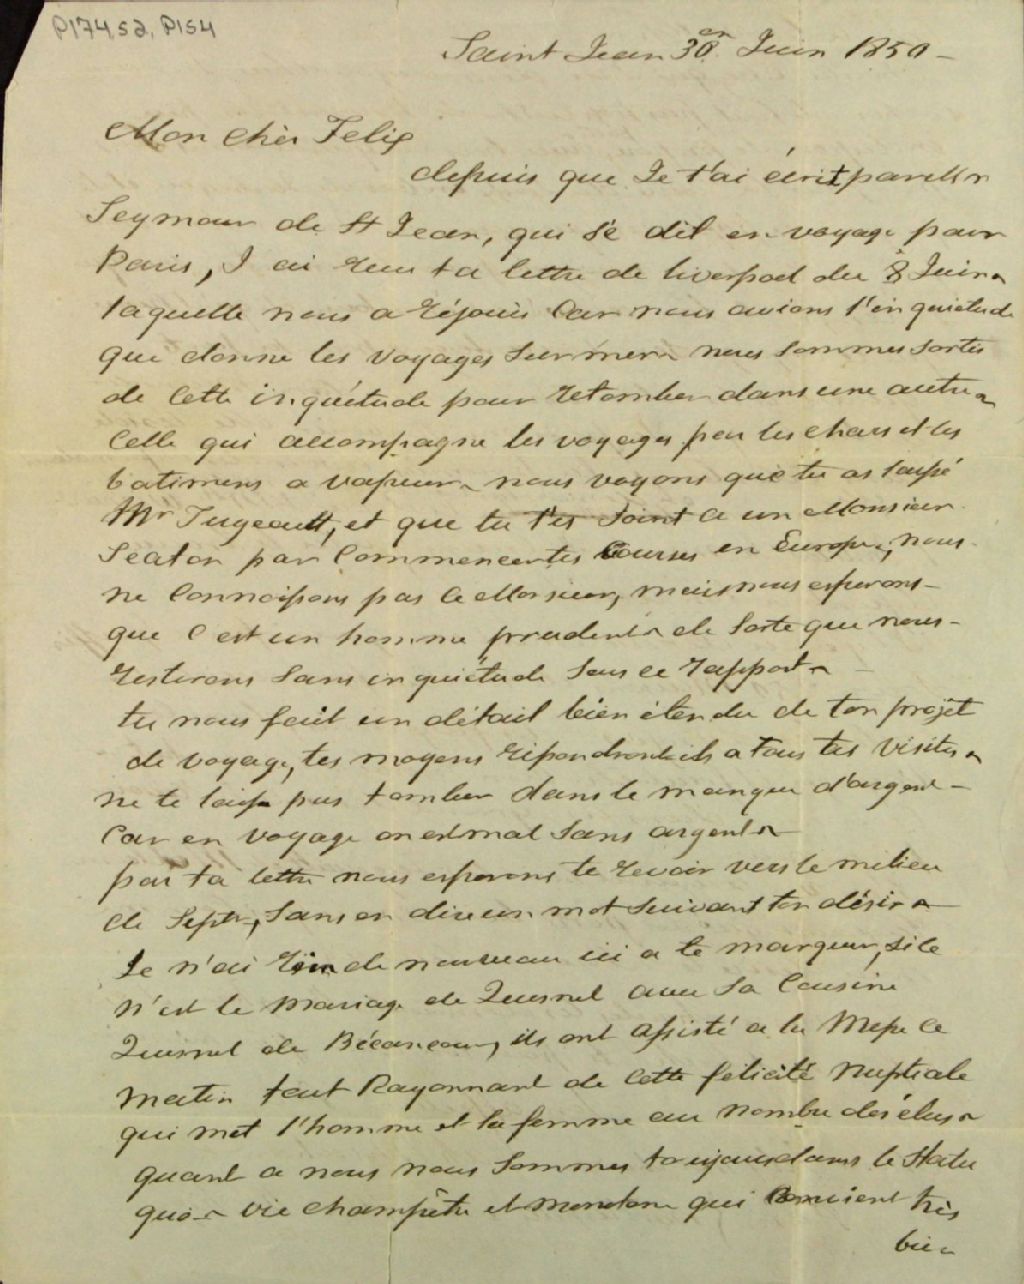 P174,S2,P154
Saint Jean 30 en Juin 1850 -
Mon cher Felix
depuis que Je t'ai écrit, par Mr
Seymour de St Jean, qui se dit en voyage pour
Paris, J ai reçu ta lettre de liverpool du 8 Juin
laquelle nous a réjouis Car nous avions l'inquietude
que donne les voyages sur mer nous sommes sortis
de Cette inquiétude pour retomber dans une autre
Celle qui accompagne les voyages par les chars et les
batimens a vapeur nous voyons que tu as laissé
Mr Tugeault, et que tu t'es Joint a un Monsieur
Seaton par Commencer tes Courses en Europe, nous
ne Connoissons pas ce Monsieur, mais nous esperons -
que C est un homme prudent de Sorte que nous -
resterons Sans inquiétude Sous ce rapport
tu nous fait un détail bien étendu de ton projet
de voyage, tes moyens repondront-ils a tous tes visites
ne te laisse pas tomber dans le manque d'argent -
Car en voyage on est mal Sans argent
par ta lettre nous esperons te revoir vers le milieu
de Septr, Sans en dire un mot suivant ton désir
Je n'ai rien de nouveau ici a te marquer, si ce
n'est le mariage de Quesnel avec Sa Cousine
Quesnel de Bécancour, ils ont assisté a la Messe ce
matin tout Rayonnant de Cette félicité nuptiale
qui met l'homme et la femme au nombre des élus
quant a nous nous Sommes toujours dans le Statu
quo - vie champêtre et monotone qui Convient très
bien